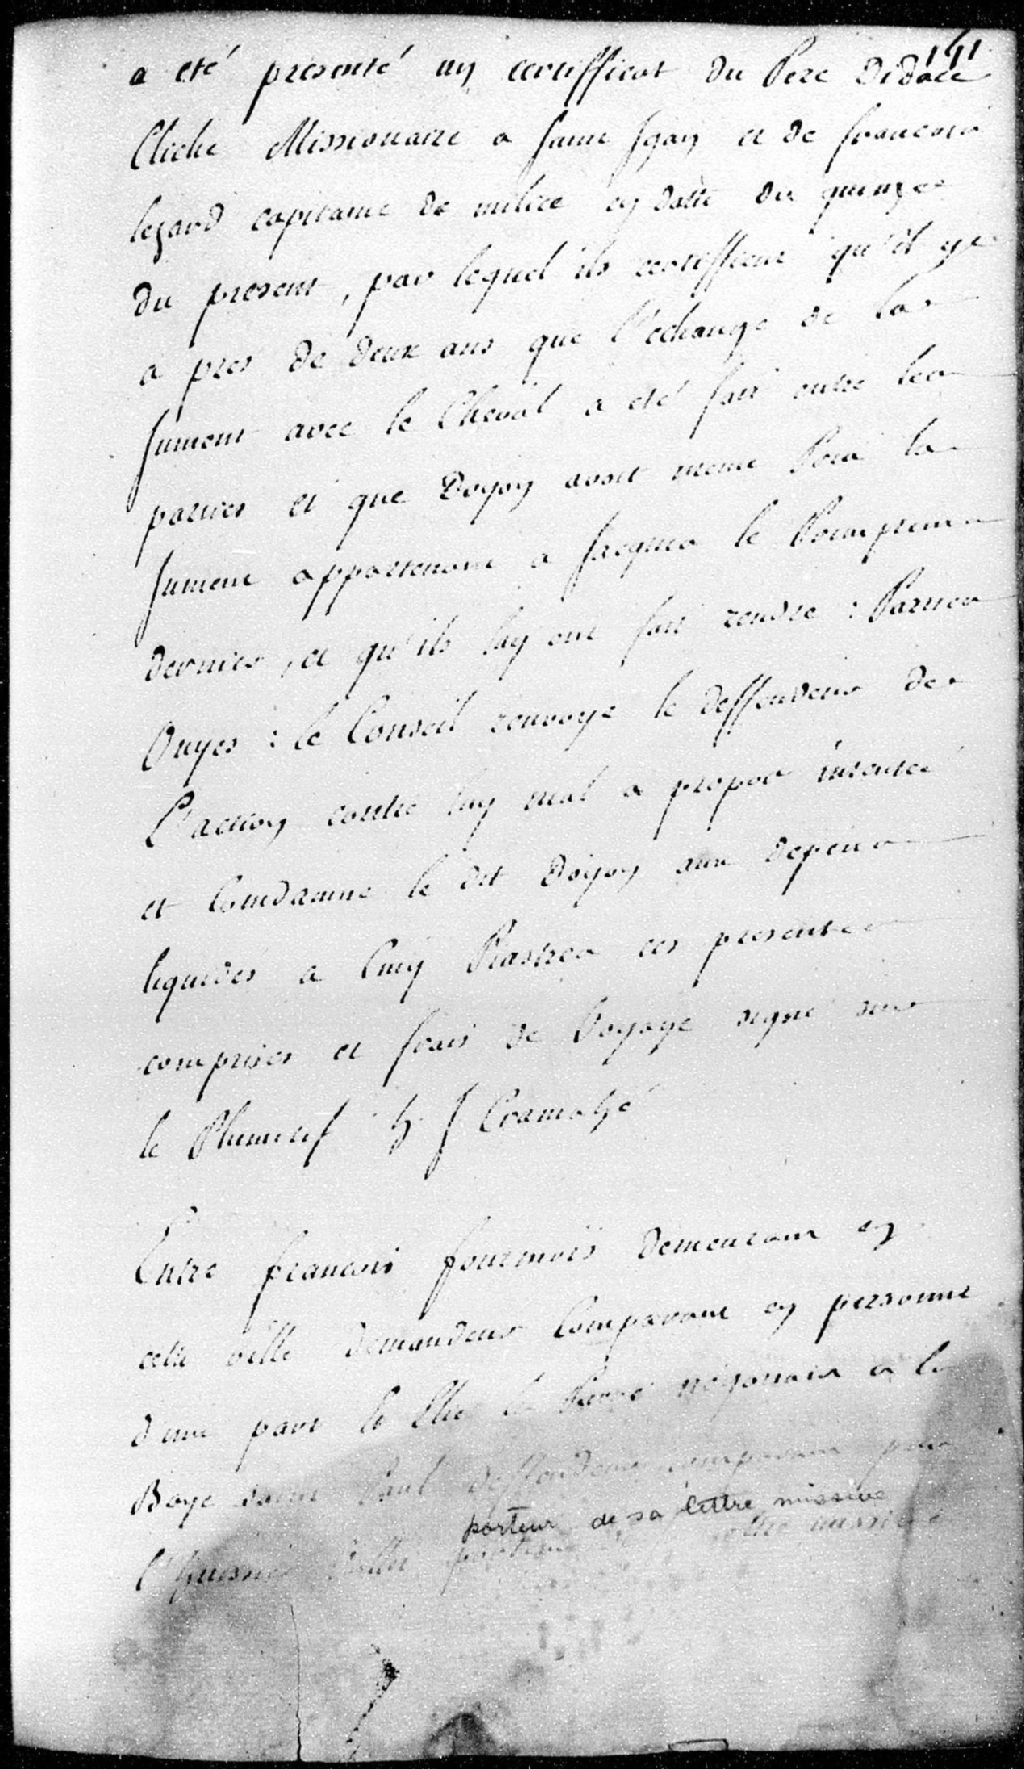 141
a eté presenté un certifficat du Pere Didace
Cliche Missionaire a Saint Jgan et de francois
legard capitaine de milice en datte du quinze
du present, par lequel ils certiffient qu'il y
a pres de deux ans que l'echange de la
Jument avec le Cheval a eté fait entre les
parties et que Doyon avoit meme la
Jument appartenant a Jacques le Printems
dernier, ce qu'ils luy ont fait rendre : Parties
Ouyes : le Conseil renvoye le deffendeur de
L'action contre luy mal a propos intentée
et Condamne le dit Doyon aux depens
liquidés a Cinq Piastres ces presentes
comprises et frais de Voyage signé sur
le Plumitif h J Cramahé
Entre francois fournois demeurant en
cette ville demandeur Comparant en personne
d'une part le negociant a la
Baye Saint Paul deffendeur comparant par
porteur de sa lettre missive
l'huissier porteur lettre missive